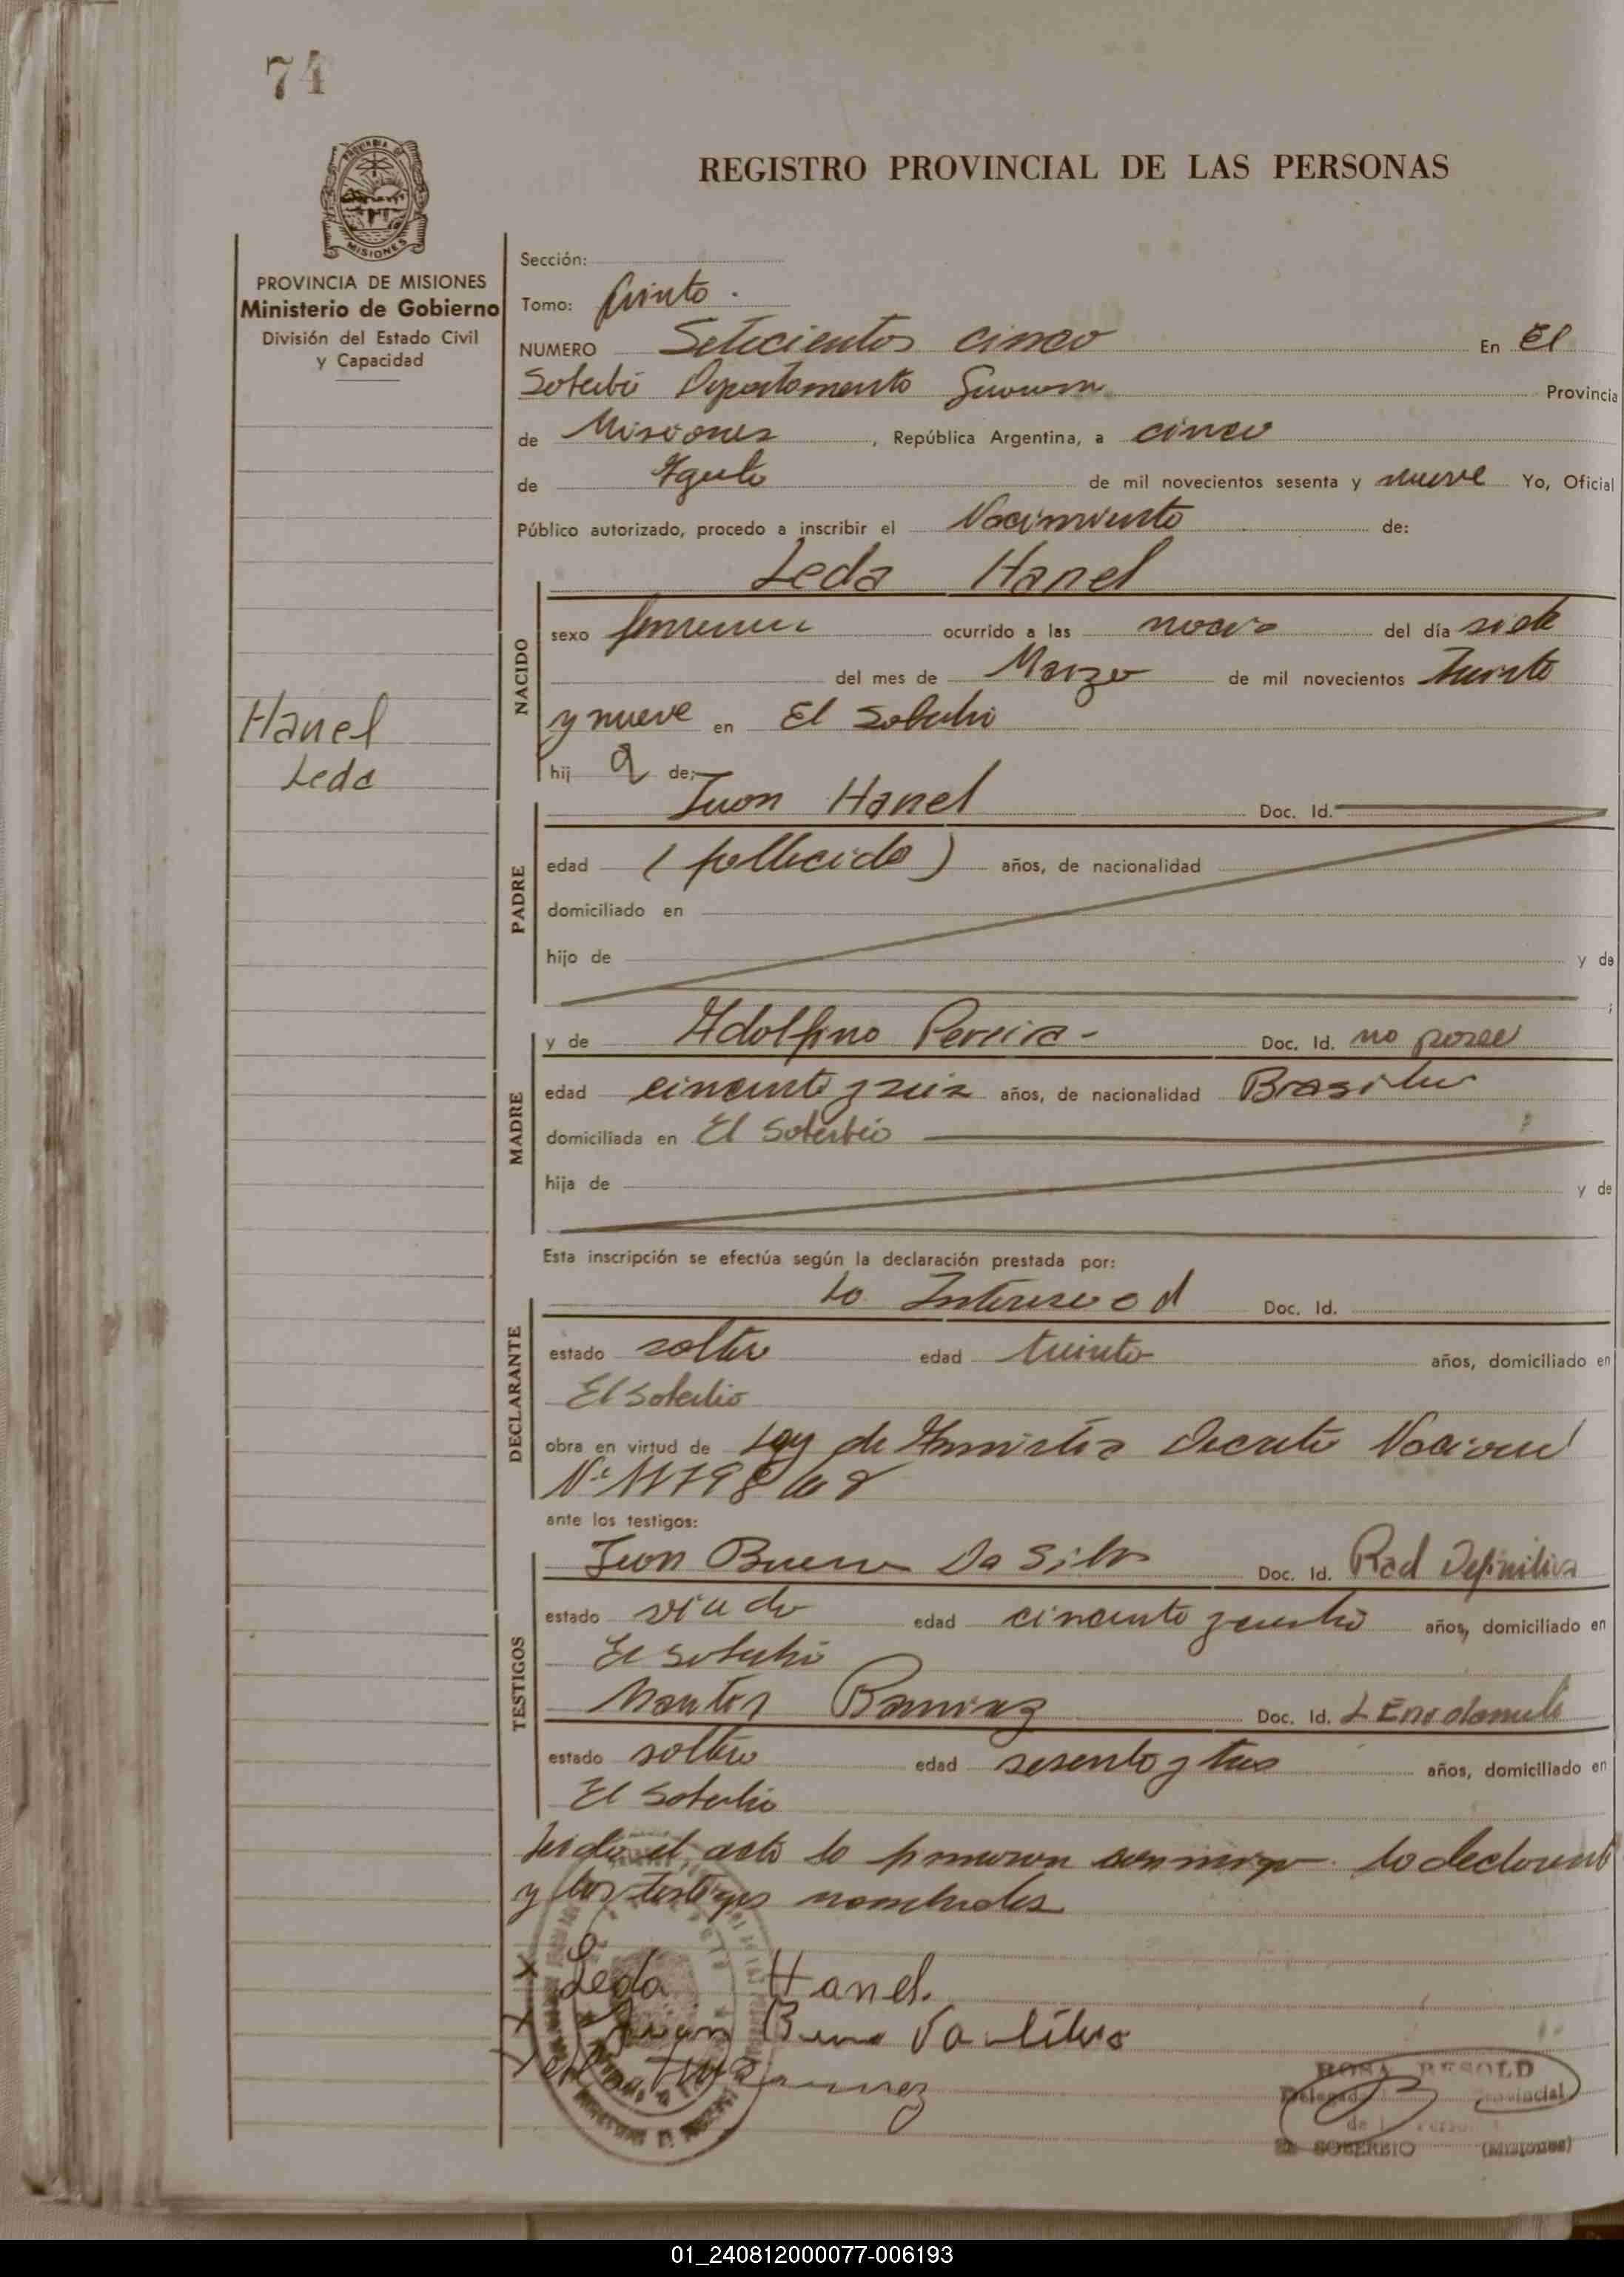 74
PROVINCIA DE MISIONES
Ministerio de Gobierno
División del Estado Civil
y Capacidad
REGISTRO PROVINCIAL DE LAS PERSONAS
Sección:
Tomo: Quinto.
NUMERO Setecientos cinco En El
Soberbio Departamento Provincia
de Misiones, República Argentina, a cinco
de Agosto de mil novecientos sesenta y nueve Yo, Oficial
Público autorizado, procedo a inscribir el Nacimiento de:
Leda Hanel
NACIDO
sexo femenino ocurrido a las nueve del día siete
del mes de Marzo de mil novecientos treinta
y nueve en El Soberbio
hij a de:
Hanel
Leda
PADRE
Juan Hanel Doc. Id.
edad (fallecido) años, de nacionalidad
domiciliado en
hijo de y de
MADRE
y de Adolfina Pereira - Doc. Id. no posee
edad cincuenta y seis años, de nacionalidad
domiciliada en El Soberbio
hija de y de
Esta inscripción se efectúa según la declaración prestada por:
DECLARANTE
la Doc. Id.
estado soltera edad treinta años, domiciliado en
El Soberbio
obra en virtud de Ley de Amnistía Decreto Nacional
ante los testigos:
TESTIGOS
Juan Bueno Da Silva Doc. Id. Rad Definitiva
estado viudo edad cincuenta y años, domiciliado en
El Soberbio
Ramirez Doc. Id.
estado soltero edad sesenta y tres años, domiciliado en
El Soberbio
Leida el acta la firmaron conmigo la declarante
y los testigos nombrados
Leda Hanel.
Juan Bueno Da Silva
ROSA RESOLD
Delegada Provincial
de
EL SOBERBIO (Misiones)
01_240812000077-006193